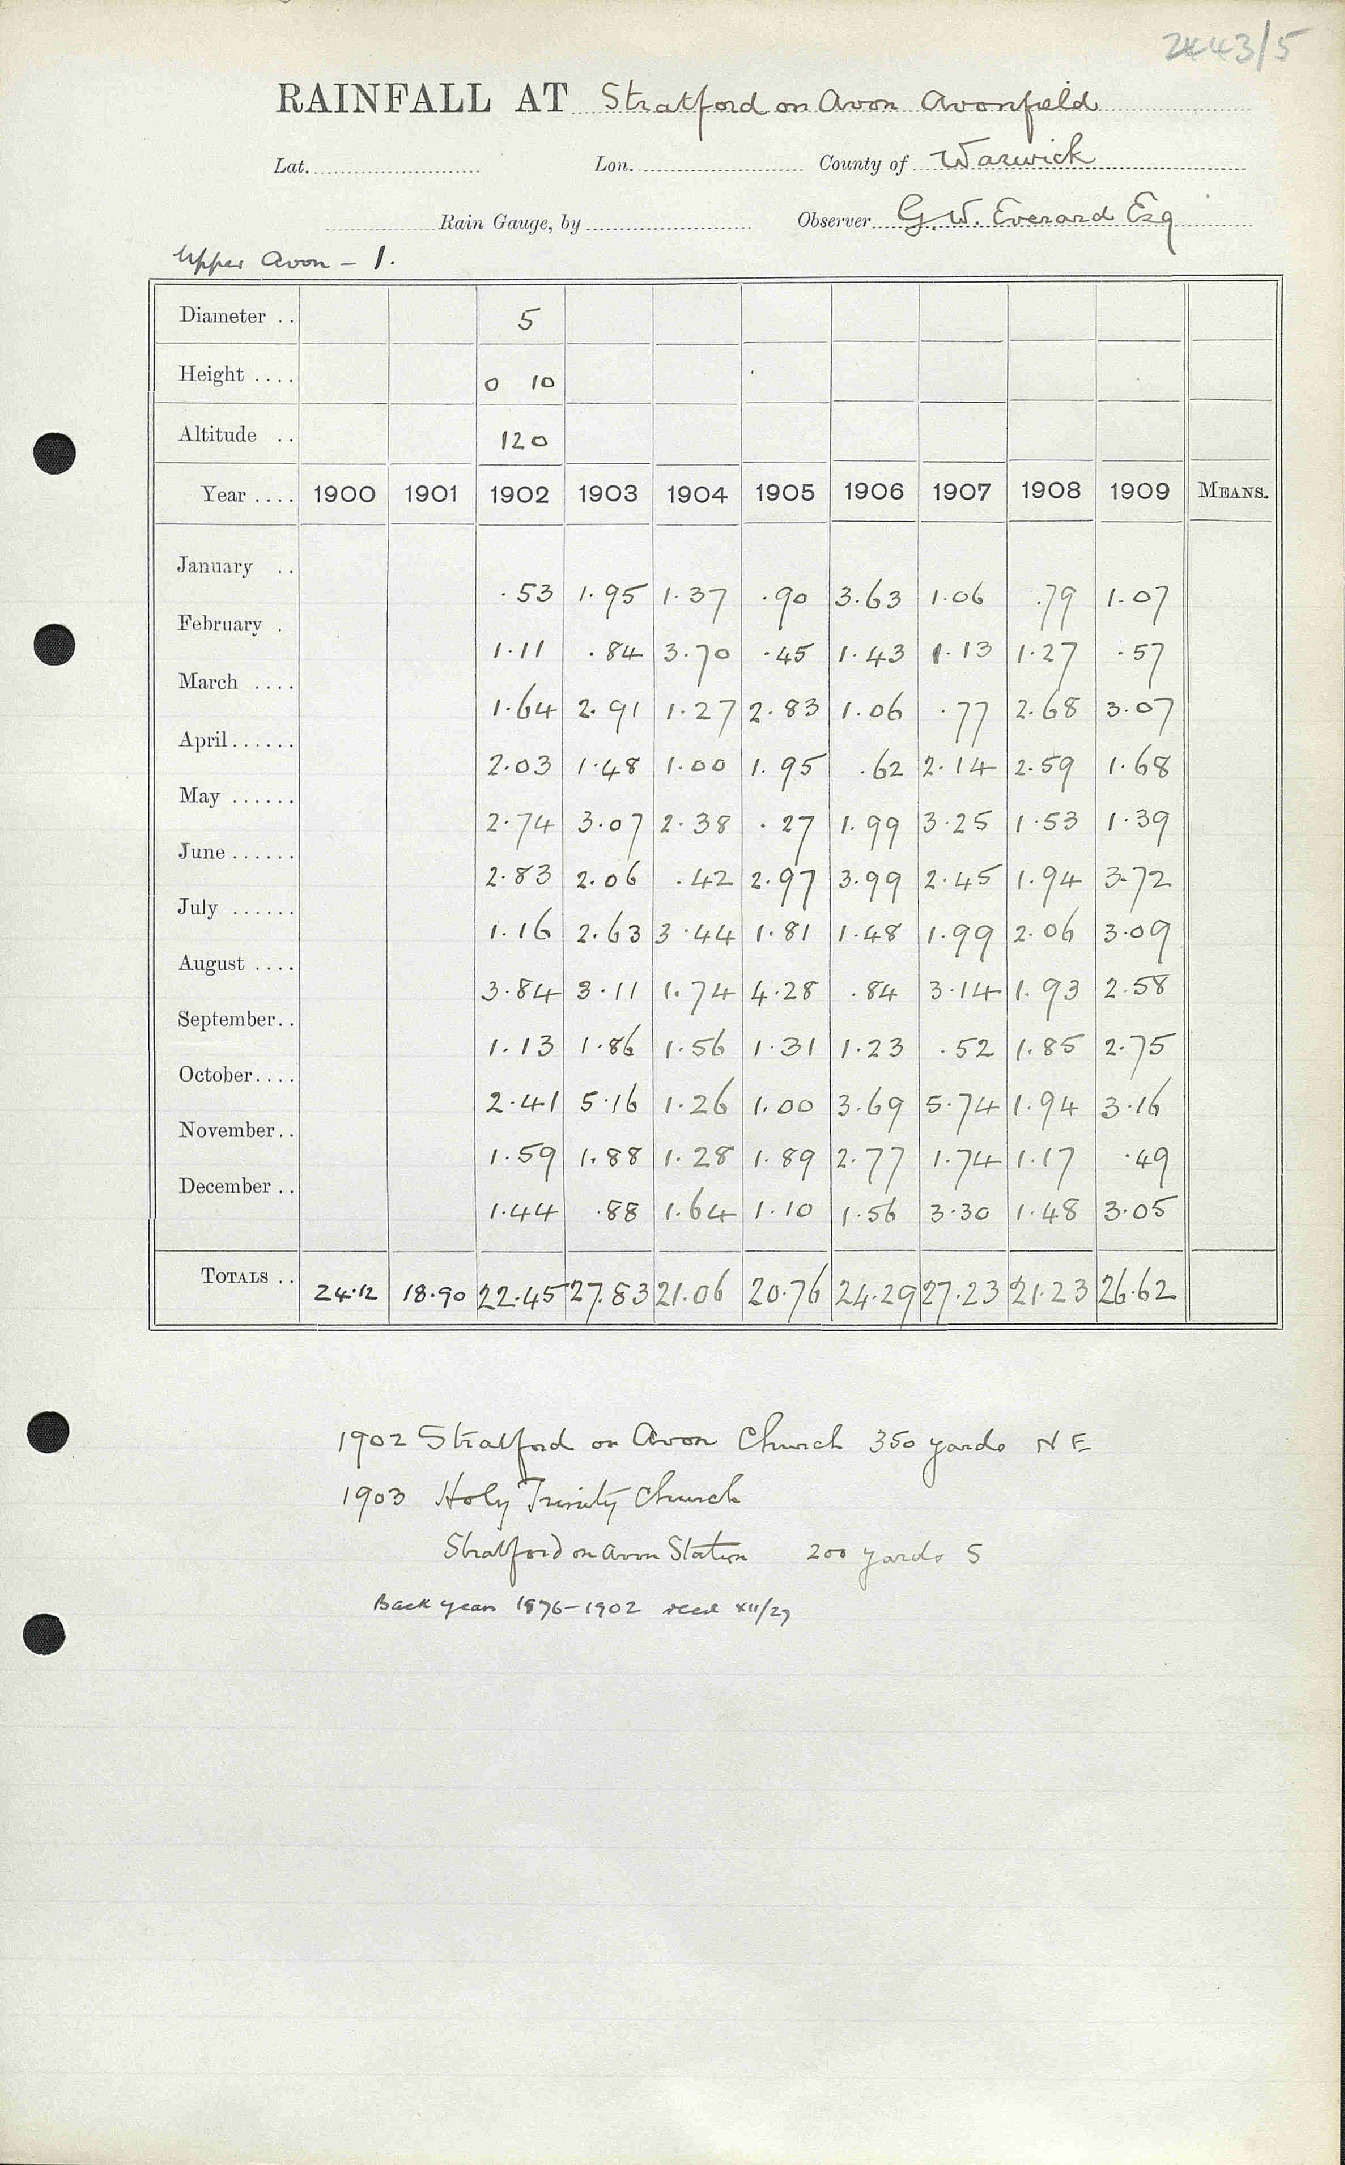 2443/5
RAINFALL AT Stratford on Avon Avonfield
Lat. Lon. County of Warwick
Rain Gauge, by Observer G. W. Everard Esq
Upper Avon - 1.
Diameter .. 5
Height .... 0 10
Altitude .. 120
Year .... 1900 1901 1902 1903 1904 1905 1906 1907 1908 1909 MEANS.
January .. .53 1.95 1.37 .90 3.63 1.06 .79 1.07
February . 1.11 .84 3.70 .45 1.43 1.13 1.27 .57
March .... 1.64 2.91 1.27 2.83 1.06 .77 2.68 3.07
April...... 2.03 1.48 1.00 1.95 .62 2.14 2.59 1.68
May ...... 2.74 3.07 2.38 .27 1.99 3.25 1.53 1.39
June...... 2.83 2.06 .42 2.97 3.99 2.45 1.94 3.72
July ...... 1.16 2.63 3.44 1.81 1.48 1.99 2.06 3.09
August .... 3.84 3.11 1.74 4.28 .84 3.14 1.93 2.58
September.. 1.13 1.86 1.56 1.31 1.23 .52 1.85 2.75
October.... 2.41 5.16 1.26 1.00 3.69 5.74 1.94 3.16
November.. 1.59 1.88 1.28 1.89 2.77 1.74 1.17 .49
December .. 1.44 .88 1.64 1.10 1.56 3.30 1.48 3.05
TOTALS .. 24.12 18.90 22.45 27.83 21.06 20.76 24.29 27.23 21.23 26.62
1902 Stratford on Avon Church 350 yards N E
1903 Holy Trinity Church
Stratford on Avon Station 200 yards S
Back years 1876-1902 recd XII/27